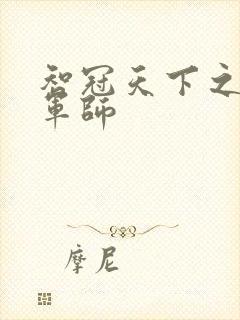 智冠天下之
軍師
摩尼